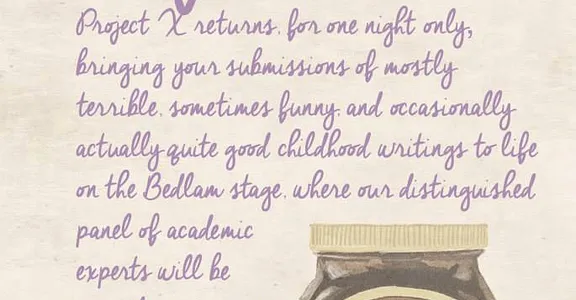 Project X returns, for one night only,
bringing your submissions of mostly
terrible, sometimes funny, and occasionally
actually quite good childhood writings to life
on the Bedlam stage, where our distinguished
panel of academic
experts will be